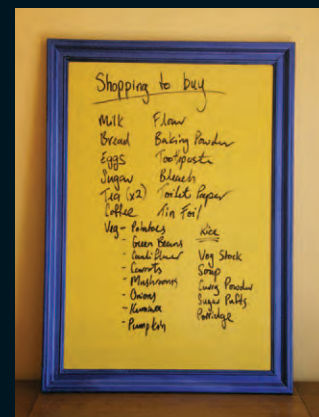 Shopping to buy
Milk
Bread
Eggs
Sugar
Tea (x2)
Coffee
Veg - Potatoes
- Green Beans
- Cauliflower
- Carrots
- Mushrooms
- Onions
- Kumara
- Pumpkin
Flour
Baking Powder
Toothpaste
Bleach
Toilet Paper
Tin Foil
Rice
Veg Stock
Soup
Curry Powder
Sugar Puffs
Porridge